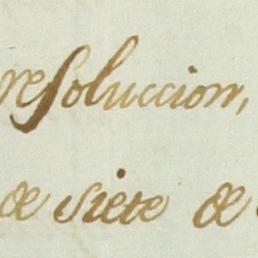 resoluccion,
de siete de